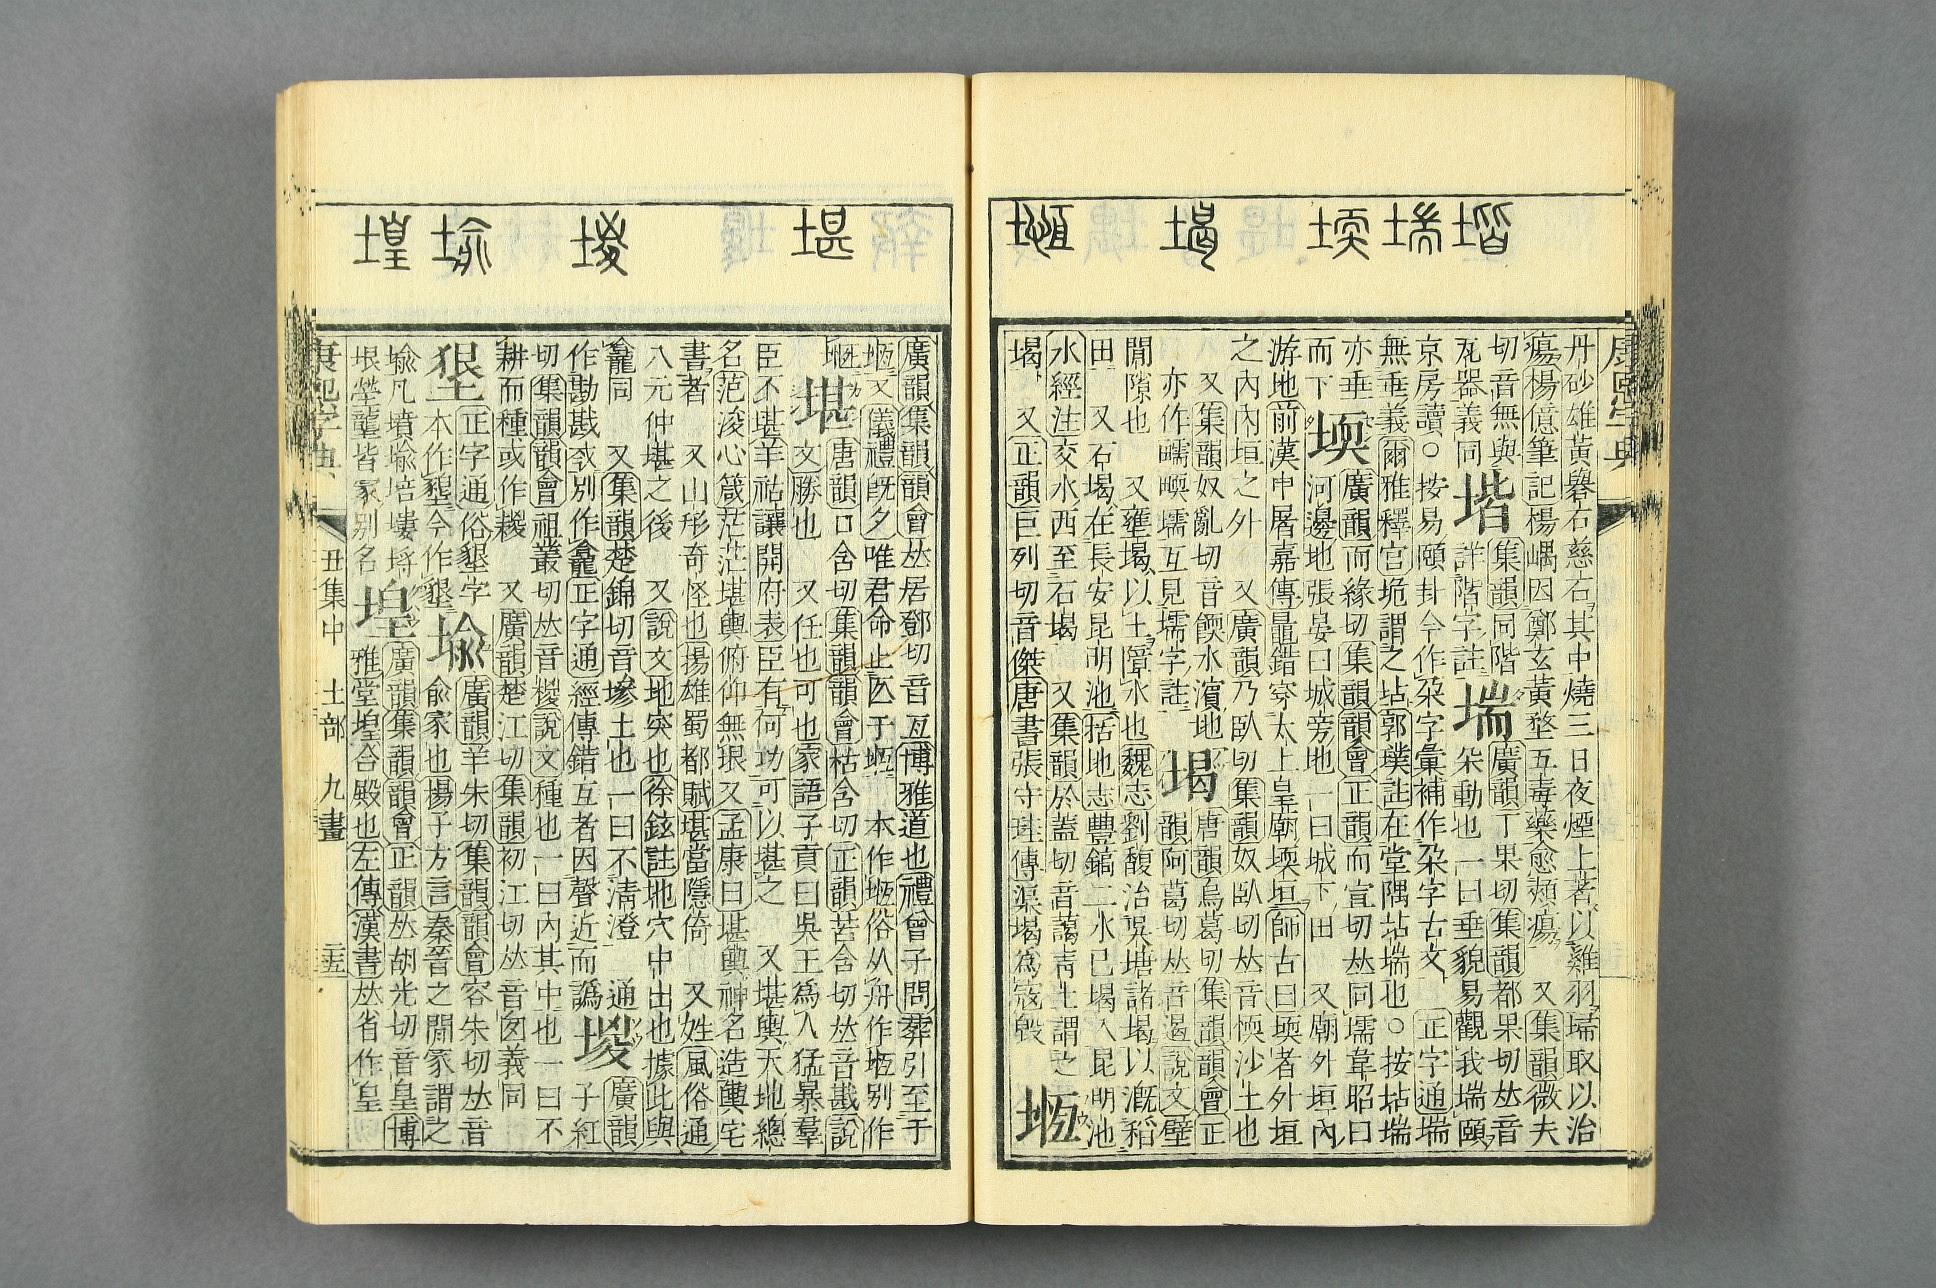 堦 瑞 堧 堨 堩
丹砂雄黃礜石慈石其中燒三日夜煙上著以雞羽埽取以治
瘍楊億筆記楊嵎因鄭玄黃堥五毒藥愈頰瘍 又集韻微夫
切音無與
瓦器義同 堦 集韻同階
詳階字註 堨 廣韻丁果切集韻都果切𠀤音
朵動也一曰垂貌易觀我端頤
京房讀○按易頤卦今作朶字彙補作朶字古文 正字通端
無垂義爾雅釋宮垝謂之坫郭璞註在堂隅坫端也○按坫端
亦垂
而下 堧 廣韻而緣切集韻韻會正韻而宣切𠀤同壖韋昭曰
河邊地張晏曰城旁地一曰城下田 又廟外垣內
游地前漢申屠嘉傳鼂錯穿太上皇廟堧垣師古曰堧者外垣
之內內垣之外 又廣韻乃臥切集韻奴臥切𠀤音愞沙土也
又集韻奴亂切音餪水濱地
亦作㬮壖互見壖字註 堨 唐韻烏葛切集韻韻會正
韻阿葛切𠀤音遏說文壁
閒隙也 又壅堨以土障水也魏志劉馥治吳塘諸堨以漑稻
田 又石堨在長安昆明池括地志豐鎬二水已堨入昆明池
水經注交水西至石堨 又集韻於蓋切音藹靑土謂之
堨 又正韻巨列切音傑唐書張守珪傳渠堨爲寇毀 堩
康熙字典
堪 堫 堬 堭
廣韻集韻韻會𠀤居鄧切音亙博雅道也禮曾子問葬引至于
堩又儀禮旣夕唯君命止匛于堩 本作堩俗从舟作堩別作
堩 堪 唐韻口含切集韻韻會枯含切正韻苦含切𠀤音戡說
文勝也 又任也可也家語子貢曰吳王爲人猛暴羣
臣不堪羊祜讓開府表臣有何功可以堪之 又堪輿天地總
名范浚心箴茫茫堪輿俯仰無垠又孟康曰堪輿神名造輿宅
書者 又山形奇怪也揚雄蜀都賦堪當隱倚 又姓風俗通
八元仲堪之後 又說文地突也徐鉉註地穴中出也據此與
龕同 又集韻楚錦切音墋土也一曰不淸澄 通
作勘戡𢦟別作龕正字通經傳錯互者因聲近而譌 堫 廣韻
子紅
切集韻韻會祖叢切𠀤音㚇說文種也一曰內其中也一曰不
耕而種或作𥠡 又廣韻楚江切集韻初江切𠀤音囪義同
𡎰 正字通俗墾字
本作墾今作墾 堬 廣韻羊朱切集韻韻會容朱切𠀤音
兪冢也揚子方言秦晉之閒冢謂之
堬凡墳堬培塿埒
埌塋壠皆冢別名 堭 廣韻集韻韻會正韻𠀤胡光切音皇博
雅堂堭合殿也左傳漢書𠀤省作皇
康熙字典 丑集中 土部 九畫